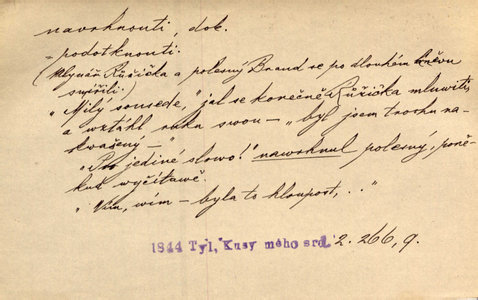 navrhnouti, dok.
- podotknouti.
(Mlynář Růžička a polesný Brand se po dlouhém hněvu
smířili.)
"Milý sousede," jal se konečně Růžička mluviti,
a wztáhl ruku swou – "byl jsem trochu na-
kwašený –"
"Pro jediné slowo!" nawrhnul polesný, poně-
kud wyčítawě.
"Wím, wím – byla to hloupost, . ."
1844 Tyl, Kusy mého srd. 2. 266, 9.